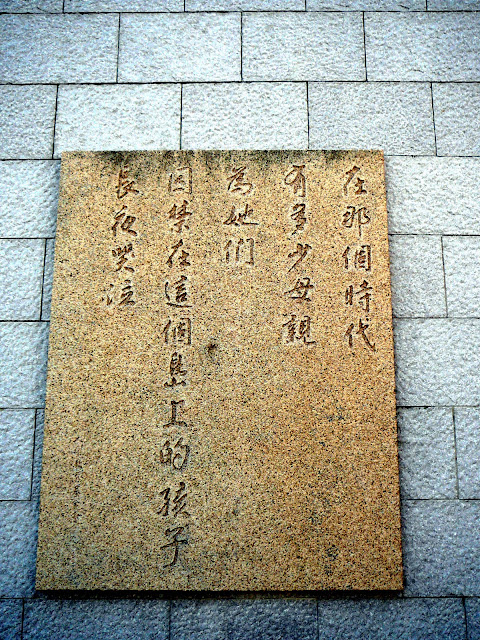 在那個時代
有多少母親
為她們
囚禁在這個島上的孩子
長夜哭泣